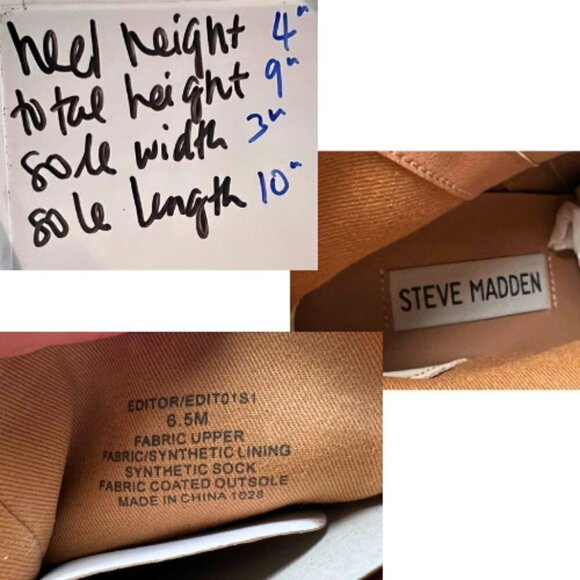 heel height 4"
total height 9"
sole width 3"
sole length 10"
STEVE MADDEN
EDITOR/EDIT01S1
6.5M
FABRIC UPPER
FABRIC/SYNTHETIC LINING
SYNTHETIC SOCK
FABRIC COATED OUTSOLE
MADE IN CHINA 1028